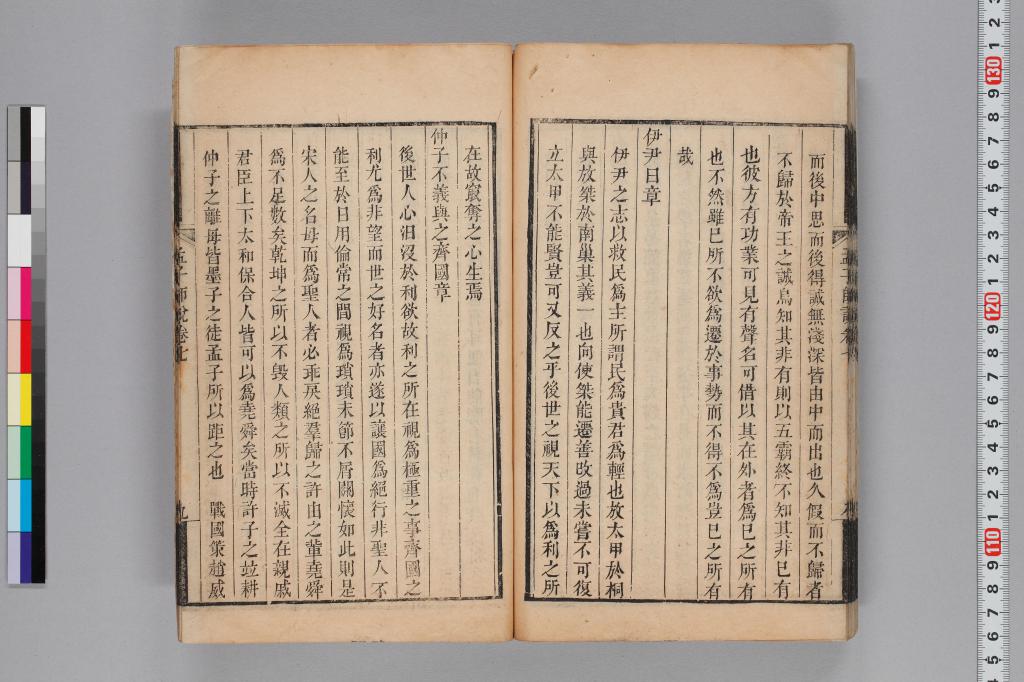 而後中思而後得誠無淺深皆由中而出也久假而不歸者
不歸於帝王之誠烏知其非有則以五霸終不知其非已有
也彼方有功業可見有聲名可借以其在外者爲已之所有
也不然雖已所不欲爲遷於事勢而不得不爲豈已之所有
哉
伊尹曰章
伊尹之志以救民爲主所謂民爲貴君爲輕也放太甲於桐
與放桀於南巢其義一也向使桀能遷善改過未嘗不可復
立太甲不能賢豈可又反之乎後世之視天下以爲利之所
在故竊奪之心生焉
仲子不義與之齊國章
後世人心汨沒於利欲故利之所在視爲極重之事齊國之
利尤爲非望而世之好名者亦遂以讓國爲絕行非聖人不
能至於日用倫常之間視爲瑣瑣末節不屑關懷如此則是
宋人之名母而爲聖人者必乖戾絕羣歸之許由之輩堯舜
爲不足數矣乾坤之所以不毀人類之所以不滅全在親戚
君臣上下太和保合人皆可以爲堯舜矣當時許子之並耕
仲子之離母皆墨子之徒孟子所以距之也　戰國策趙威
孟子師說卷七
九